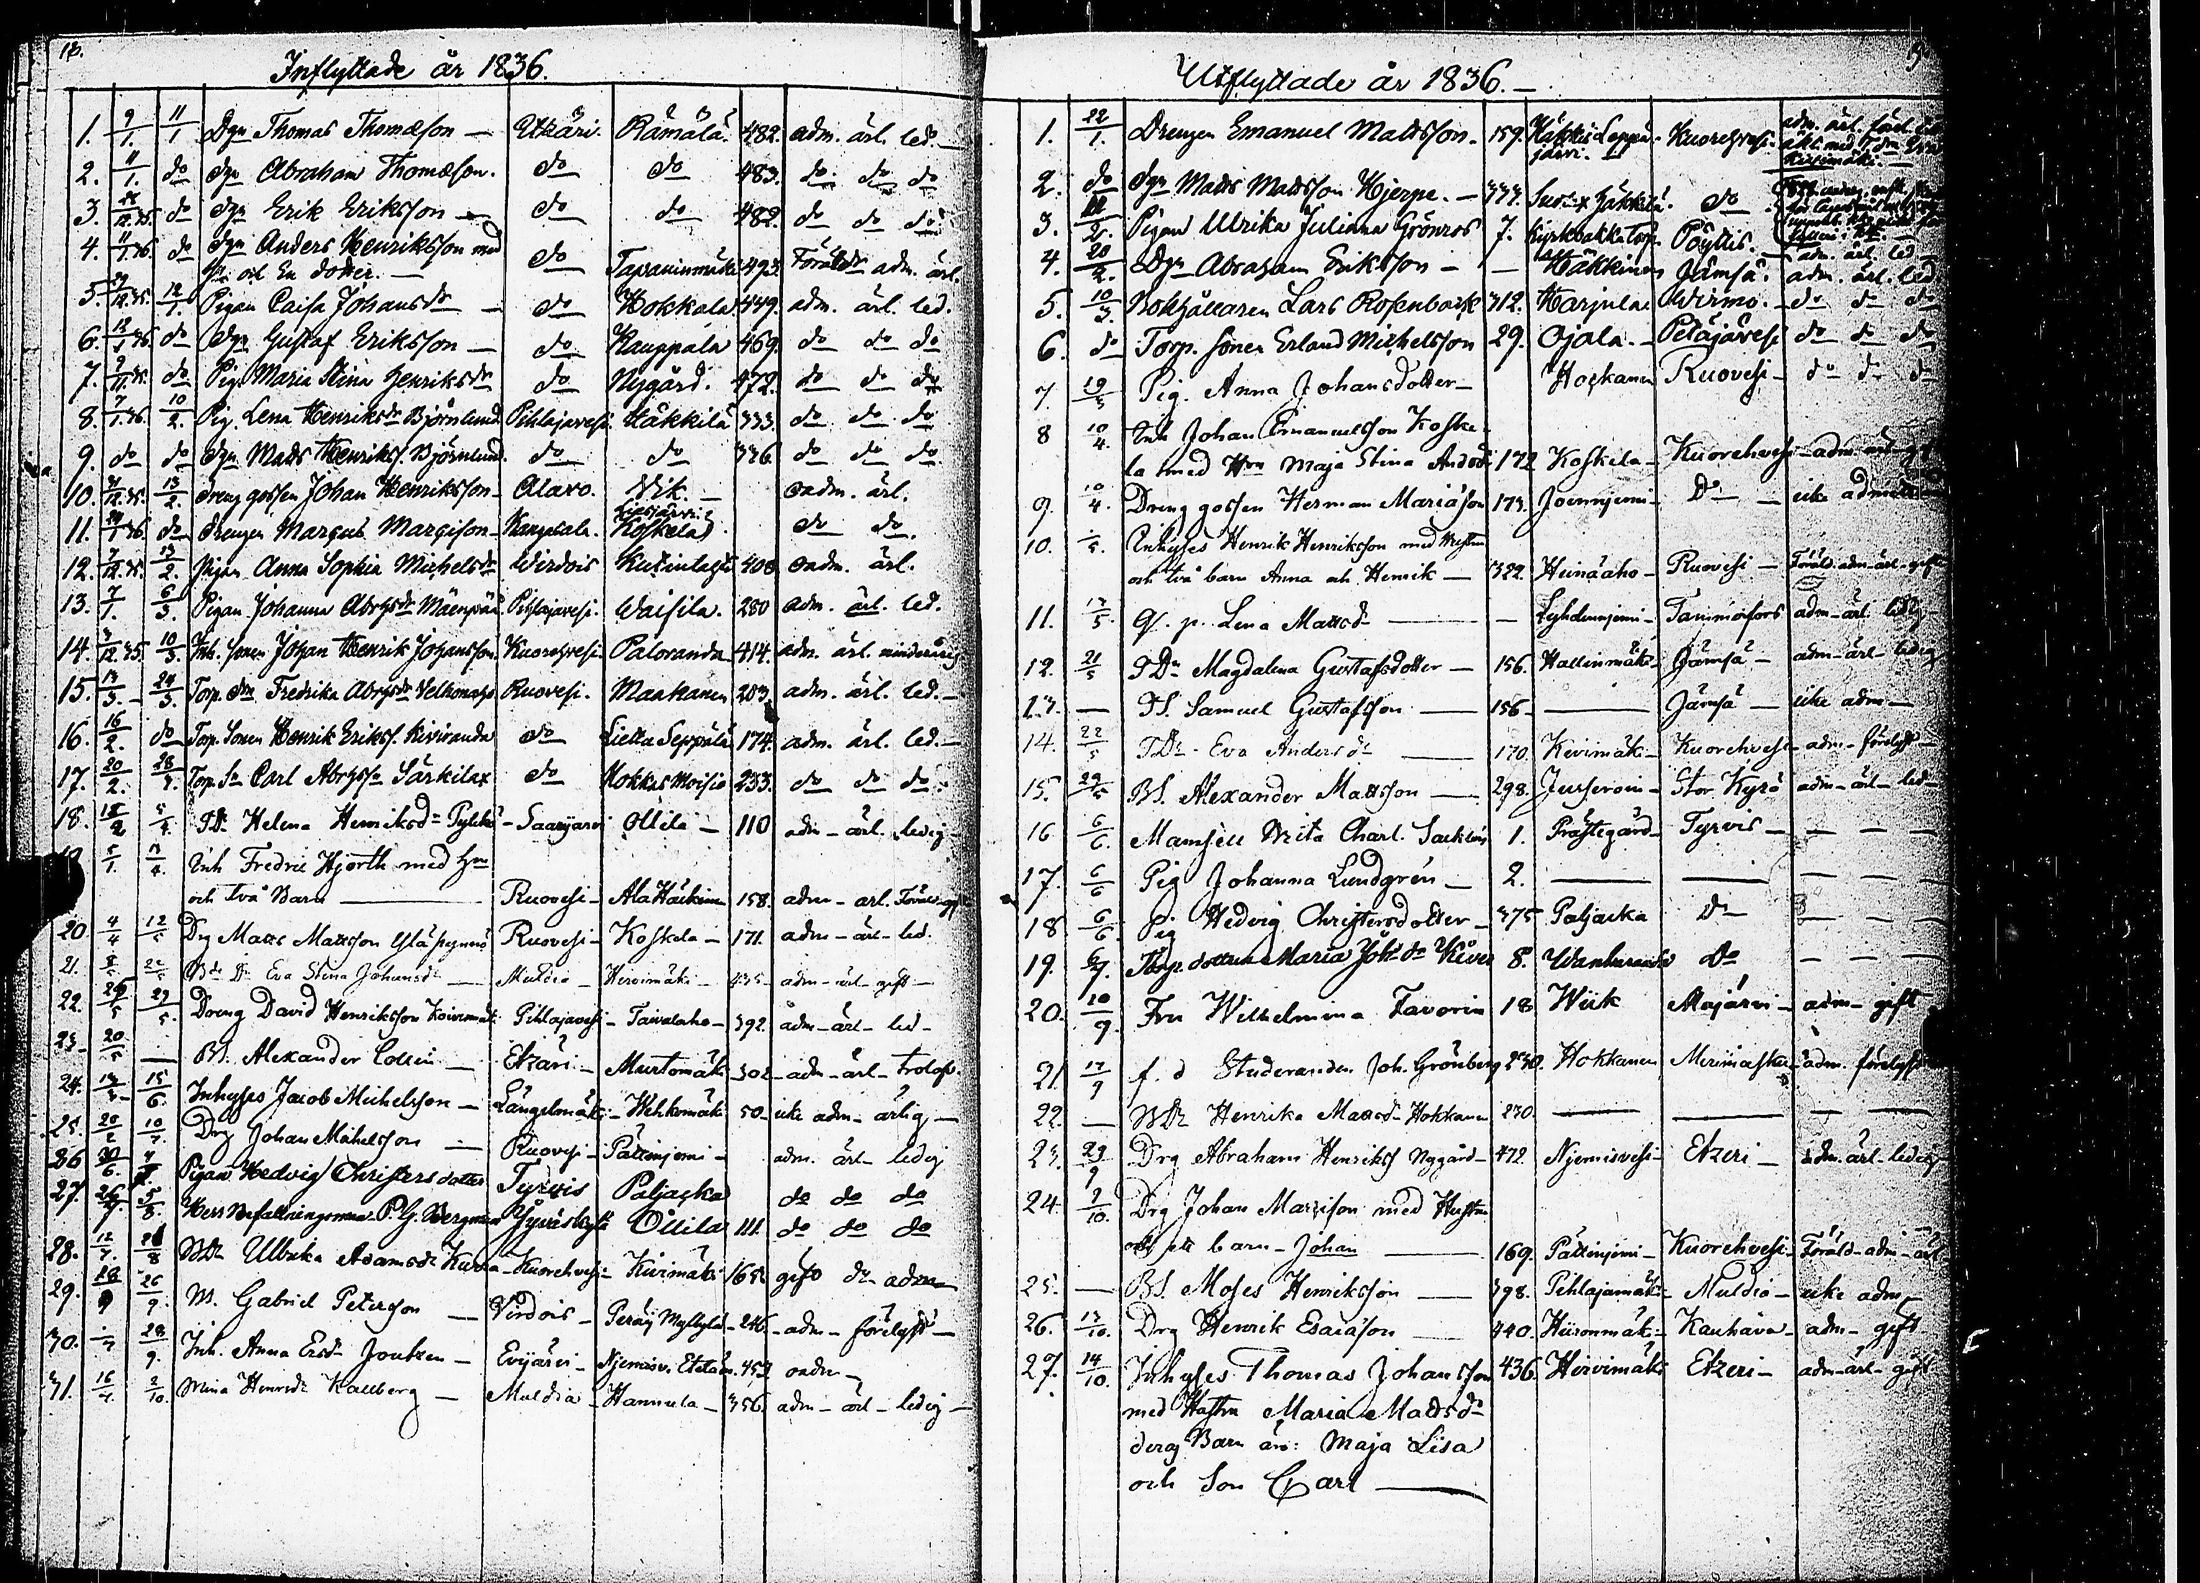 18.
Inflyttade år 1836.
1. 9/1. 11/1 Dgn Thomas Thomæson — Etzäri. Rämälä. 482. adm. ärl. led. —
2. 11/1. do dgn Abraham Thomæson. do do 483. do do do
3. do dgn Erik Eriksson — do do 482. do do do
4. 11/1.36. do dgn Anders Henriksson med
och En dotter. — do Tapaninmäki 493. adm. ärl.
5. 12/1. Pigan Caisa Johansdr — do Hokkala 449. adm. ärl. led.
6. 12/1 36. do dgn Gustaf Eriksson — do Kauppala 469. do do do
7. do Pig. Maria Stina Henriksdr do Nygård. 472. do do do
8. 7/1.36. 10/2. Pig. Lena Henriksdr Björnlund Pihlajavesi Häkkilä 333. do do do
9. do do dgn Matts Henrikss. Björnlund. do do 336. do do do
10. 13/2. dreng gossen Johan Henriksson — Alavo. Vik. — oadm. ärl.
11. do drengen Marqus Marqison — Koskela do do.
12. 7/12.35. 13/2. Pigan Anna Sophia Michelsdr Wirdois 408 oadm. ärl.
13. 7/1. 6/3. Pigan Johanna Abrhsdr Mäenpää Pihlajavesi. Waisila. 280 adm. ärl. led.
14. 3/12.35. 10/3. Inh. sonen Johan Henrik Johansson. Kuorehvesi. Paloranda 414. adm. ärl. minderårig
15. 13/3. 24/3. Torp. dr Fredrika Abrhsdr Ruovesi. Maakanen 203. adm. ärl. led. —
16. 16/2. do Torp. Sonen Henrik Erikss. Kiviranda do Liella Seppälä 174. adm. ärl. led. —
17. 20/2. 28/3. Torp. Sn Carl Abrhsson Särkilax do Kokkas Moisio 233. do do do
18. 18/2 5/4. TDr Helena Henriksdr — Saarijärvi Ollila — 110 adm — ärl. ledig
5/1. Inh Fredric Hjorth med
och två Barn — Ruovesi — Ala Häkkinen 158. adm — ärl.
20. 4/4 12/5 Drg Matts Mattsson Ruovesi — Koskela — 171. adm — ärl — led.
21. Dr Eva Stina Johansdr — Muldia — Hirvimäki — 435 — adm — ärl — gift —
22. Dreng David Henriksson Koivimäki Pihlajavesi — Taivalaho — 392. adm — ärl — led —
23 — 20/5 — BS. Alexander Collin — Etzäri — Murtomäki 302 — adm — ärl — trolof.
24. 15/6. Inhyses Jacob Michelsson — Längelmäki — Wehkomäki 50 — icke adm — ärlig —
25. 20/2 10/7. Drg Johan Michelsson — Ruovesi — Pättinjemi — adm. ärl — ledig
26 30/6. Pigan Hedvig Christersdotter Tyrvis Paljacka do do do
27. 26/7. 5/8. Herr Befallningsman P. G. Bergman Jyväskylä Ollila 111. do do do
28. 12/7. 21/8 Ulrika Adamsdr — Kuorehvesi — Kivimäki 165. gift adm
29. 18/9 26/9. Gabriel Petersson — Virdois — Peräj Myllylä — 246. — adm — förelyft —
30. 28/9. Inh. Anna Ersdr Joutzen — Evijärvi — Njemisv. Etelä 453 oadm —
31. 16/7 2/10. Mina Henrsdr Kallberg — Muldia — Hannula — 356. adm — ärl — ledig —
Utflyttade år 1836. —
1. 22/1. Drengen Emanuel Mattsson. 159. Häkkis Leppä- Kuorehvesi. adm. ärl.
järvi.
2. do dgn Matts Mattsson Hjerpe. — 333. Häkkilä. do
3. Pigan Ulrika Juliana Grönros 7. Kyrkbacka Torp. Pöytis. adm. ärl. led
4. 20/2. dgn Abraham Eriksson — — Häkkinen Jämsä. adm. ärl. led.
5. 10/3. Bokhållaren Lars Rosenback 312. Harjula Wirmo. — do do do
6. do Torp. sonen Erland Michelsson 29. Ojala. — Petäjävesi do do do
7. 19/3 Pig. Anna Johansdotter — Hoskanen Ruovesi — do do do
8 10/4. Inh Johan Emanuelsson Koske-
la med Hru Maja Stina Andsdr 172 Koskela — Kuorehvesi — adm —
9. 10/4. Dreng gossen Herman Mariäson 173. Joenniemi — Do — icke
10. Inhyses Henrik Henriksson med Hustru
och två barn Anna och Henrik — 322. Heinäaho — Ruovesi — Föräld. adm. ärl. gifte
11. 17/5. Lena Mattsdr — — Lyhdenniemi — Tammerfors adm — ärl ledig
12. 21/5 TDr Magdalena Gustafsdotter — 156. Hallinmäki — Jämsä — adm — ärl — ledig
13. — TS. Samuel Gustafsson — 156 — — Jämsä — icke adm —
14. 22/5 TDr. Eva Andersdr — 170. Kivimäki — Kuorehvesi — adm — förelyft —
15. 29/5 BS. Alexander Mattsson — 298. Stor Kyrö adm — ärl — led —
16 6/6. Mamsell Charl. 1. Prästegård — Tyrvis — — — —
17. 6/6 Pig Johanna Lundgrén — 2. — — — — —
18 6/6. Pig Hedvig Christersdotter — 375 Paljacka Do — — —
19. 6/7. Torp. dottren Maria Johsdr 8. Wanhuranda Do — — —
20. 10/9. Fru Wilhelmina Favorin 18 Wiik Majärvi — adm — gift
21. 17/9 f. d Studeranden Joh. Grönberg 230. Hokkanen Merimasku — adm. förelyft
22. — Henrika Mattsd. Hokkanen 230. — — — — —
23. 29/9 Drg Abraham Henrikss Nygård — 472. Njemisvesi — Etzeri — adm. ärl — ledig
24. 9/10. Drg Johan med Hustru
och ett barn — Johan — 169. Pättinjemi — Kuorehvesi — Föräld — adm — ärl —
25. — BS. Moses Henriksson — 398. Pihlajamäki — Muldia — icke adm —
26. 13/10. Drg Henrik Esaiäson — 440. Hiironmäki — Kauhava — adm — gift
27. 14/10. Inhyses Thomas Johansson 436. Hirvimäki Etzeri — adm — ärl — gift
med Hustru Maria Mattsdr
deras Barn äro: Maja Lisa
och Son Carl —